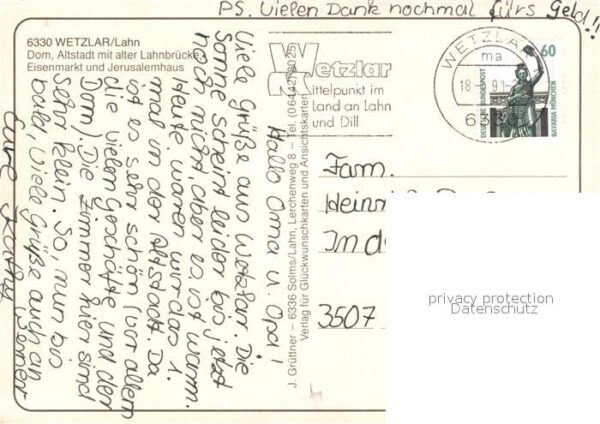 PS. Vielen Dank nochmal fürs Geld!!
6330 WETZLAR/Lahn
Dom, Altstadt mit alter Lahnbrücke
Eisenmarkt und Jerusalemhaus
Hallo Oma u. Opa!
Viele Grüße aus Wetzlar. Die
Sonne scheint leider bis jetzt
noch nicht, aber es ist warm.
Heute waren wir das 1.
mal in der Altstadt. Da
ist es sehr schön (vor allem
die vielen Geschäfte und der
Dom) Die Zimmer hier sind
sehr klein. So, nun bis
bald. Viele Grüße auch an
Werner
Eure Kathy
J. Grüttner – 6336 Solms/Lahn, Lerchenweg 8 – Tel. (06441)
Verlag für Glückwunschkarten und Ansichtskarten
Wetzlar
Mittelpunkt im
Land an Lahn
und Dill
WETZLAR
ma
6330
60
DEUTSCHE BUNDESPOST
BAVARIA MÜNCHEN
Fam.
In d
3507
privacy protection
Datenschutz